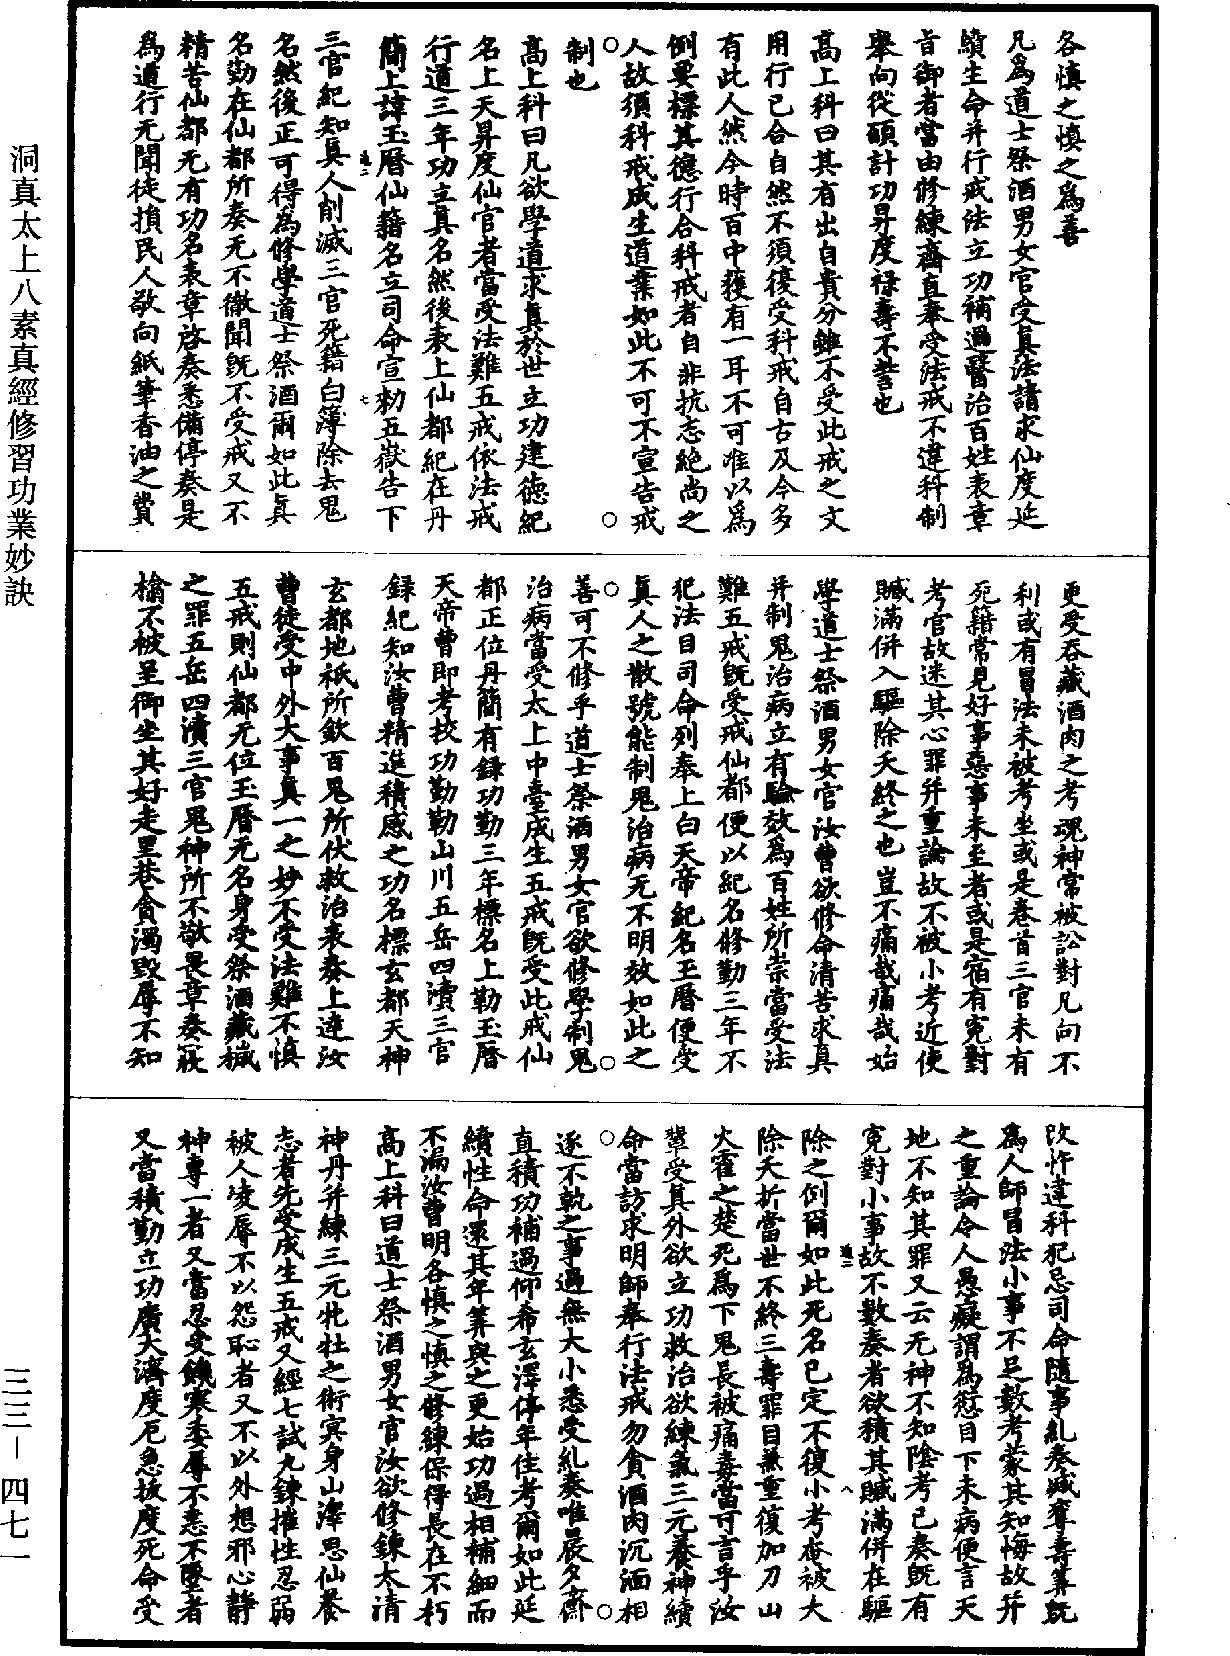 洞真太上八素真經修習功業妙訣
三三—四七一
各慎之慎之為善
凡為道士祭酒男女官受真法請求仙度延
續生命并行戒法立功補過醫治百姓表章
旨御者當由修練齋直奉受法戒不違科制
舉向從願計功昇度祿壽不訾也
高上科曰其有出自貴分雖不受此戒之文
用行已合自然不須復受科戒自古及今多
有此人然今時百中獲有一耳不可准以為
倒要標其德行合科戒者自非抗志絕尚之
人故須科戒成生道業如此不可不宣告戒
制也
高上科曰凡欲學道求真於世立功建德紀
名上天昇度仙官者當受法難五戒依法戒
行道三年功立真名然後表上仙都紀在丹
簡上諱玉曆仙籍名立司命宣勑五嶽告下
三官紀知真人削滅三官死籍白簿除去鬼
名然後正可得為修學道士祭酒爾如此真
名勤在仙都所奏无不徹聞既不受戒又不
精苦仙都无有功名表章啓奏悉備停奏是
為道行无聞徒損民人敬向紙筆香油之費
更受吞藏酒肉之考魂神常被訟對凡向不
利或有冒法未被考坐或是春首三官未有
死籍常見好事惡事未至者或是宿有寃對
考官故迷其心罪并重論故不被小考近使
贓滿併入驅除夭終之也豈不痛哉痛哉始
學道士祭酒男女官汝曹欲修命清苦求真
并制鬼治病立有驗效為百姓所崇當受法
難五戒既受戒仙都便以紀名修勤三年不
犯法目司命列奉上白天帝紀名玉曆便受
真人之散號能制鬼治病无不明效如此之
善可不修乎道士祭酒男女官欲修學制鬼
治病當受太上中臺成生五戒既受此戒仙
都正位丹簡有錄功勤三年標名上勒玉曆
天帝曹即考校功勤勒山川五岳四瀆三官
録紀知汝曹精進積感之功名標玄都天神
玄都地祇所欽百鬼所伏救治表奏上達汝
曹徒受中外大事真一之妙不受法難不慎
五戒則仙都无位玉曆无名身受祭酒藏穢
之罪五岳四瀆三官鬼神所不敬畏章奏寢
檢不被呈御坐其好走里巷貪濁毀辱不知
改忤違科犯忌司命隨事糺奏減奪壽筭既
為人師冒法小事不足數考蒙其知悔故并
之重論令人愚癡謂為愆目下未病便言天
地不知其罪又云无神不知陰考已奏既有
寃對小事故不數奏者欲積其贓滿併在驅
除之倒爾如此死名已定不復小考奄被大
除夭折當世不終三壽罪目兼重復加刀山
火霍之楚死為下鬼長被痛毒當可言乎汝
輩受真外欲立功救治欲練氣三元養神續
命當訪求明師奉行法戒勿貪酒肉沉湎相
逐不軌之事過無大小悉受糺奏唯晨夕齋
直積功補過仰希玄澤停年住考爾如此延
續性命還其年筭與之更始功過相補細而
不漏汝曹明各慎之慎之修練保得長在不朽
高上科曰道士祭酒男女官汝欲修鍊太清
神丹并練三元牝牡之術㝠身山澤思仙養
志者先受成生五戒又經七試九鍊摧性忍弱
被人凌辱不以怨恥者又不以外想邪心靜
神專一者又當忍受饑寒委辱不恚不墮者
又當積勤立功廣大濟度厄急拔度死命受